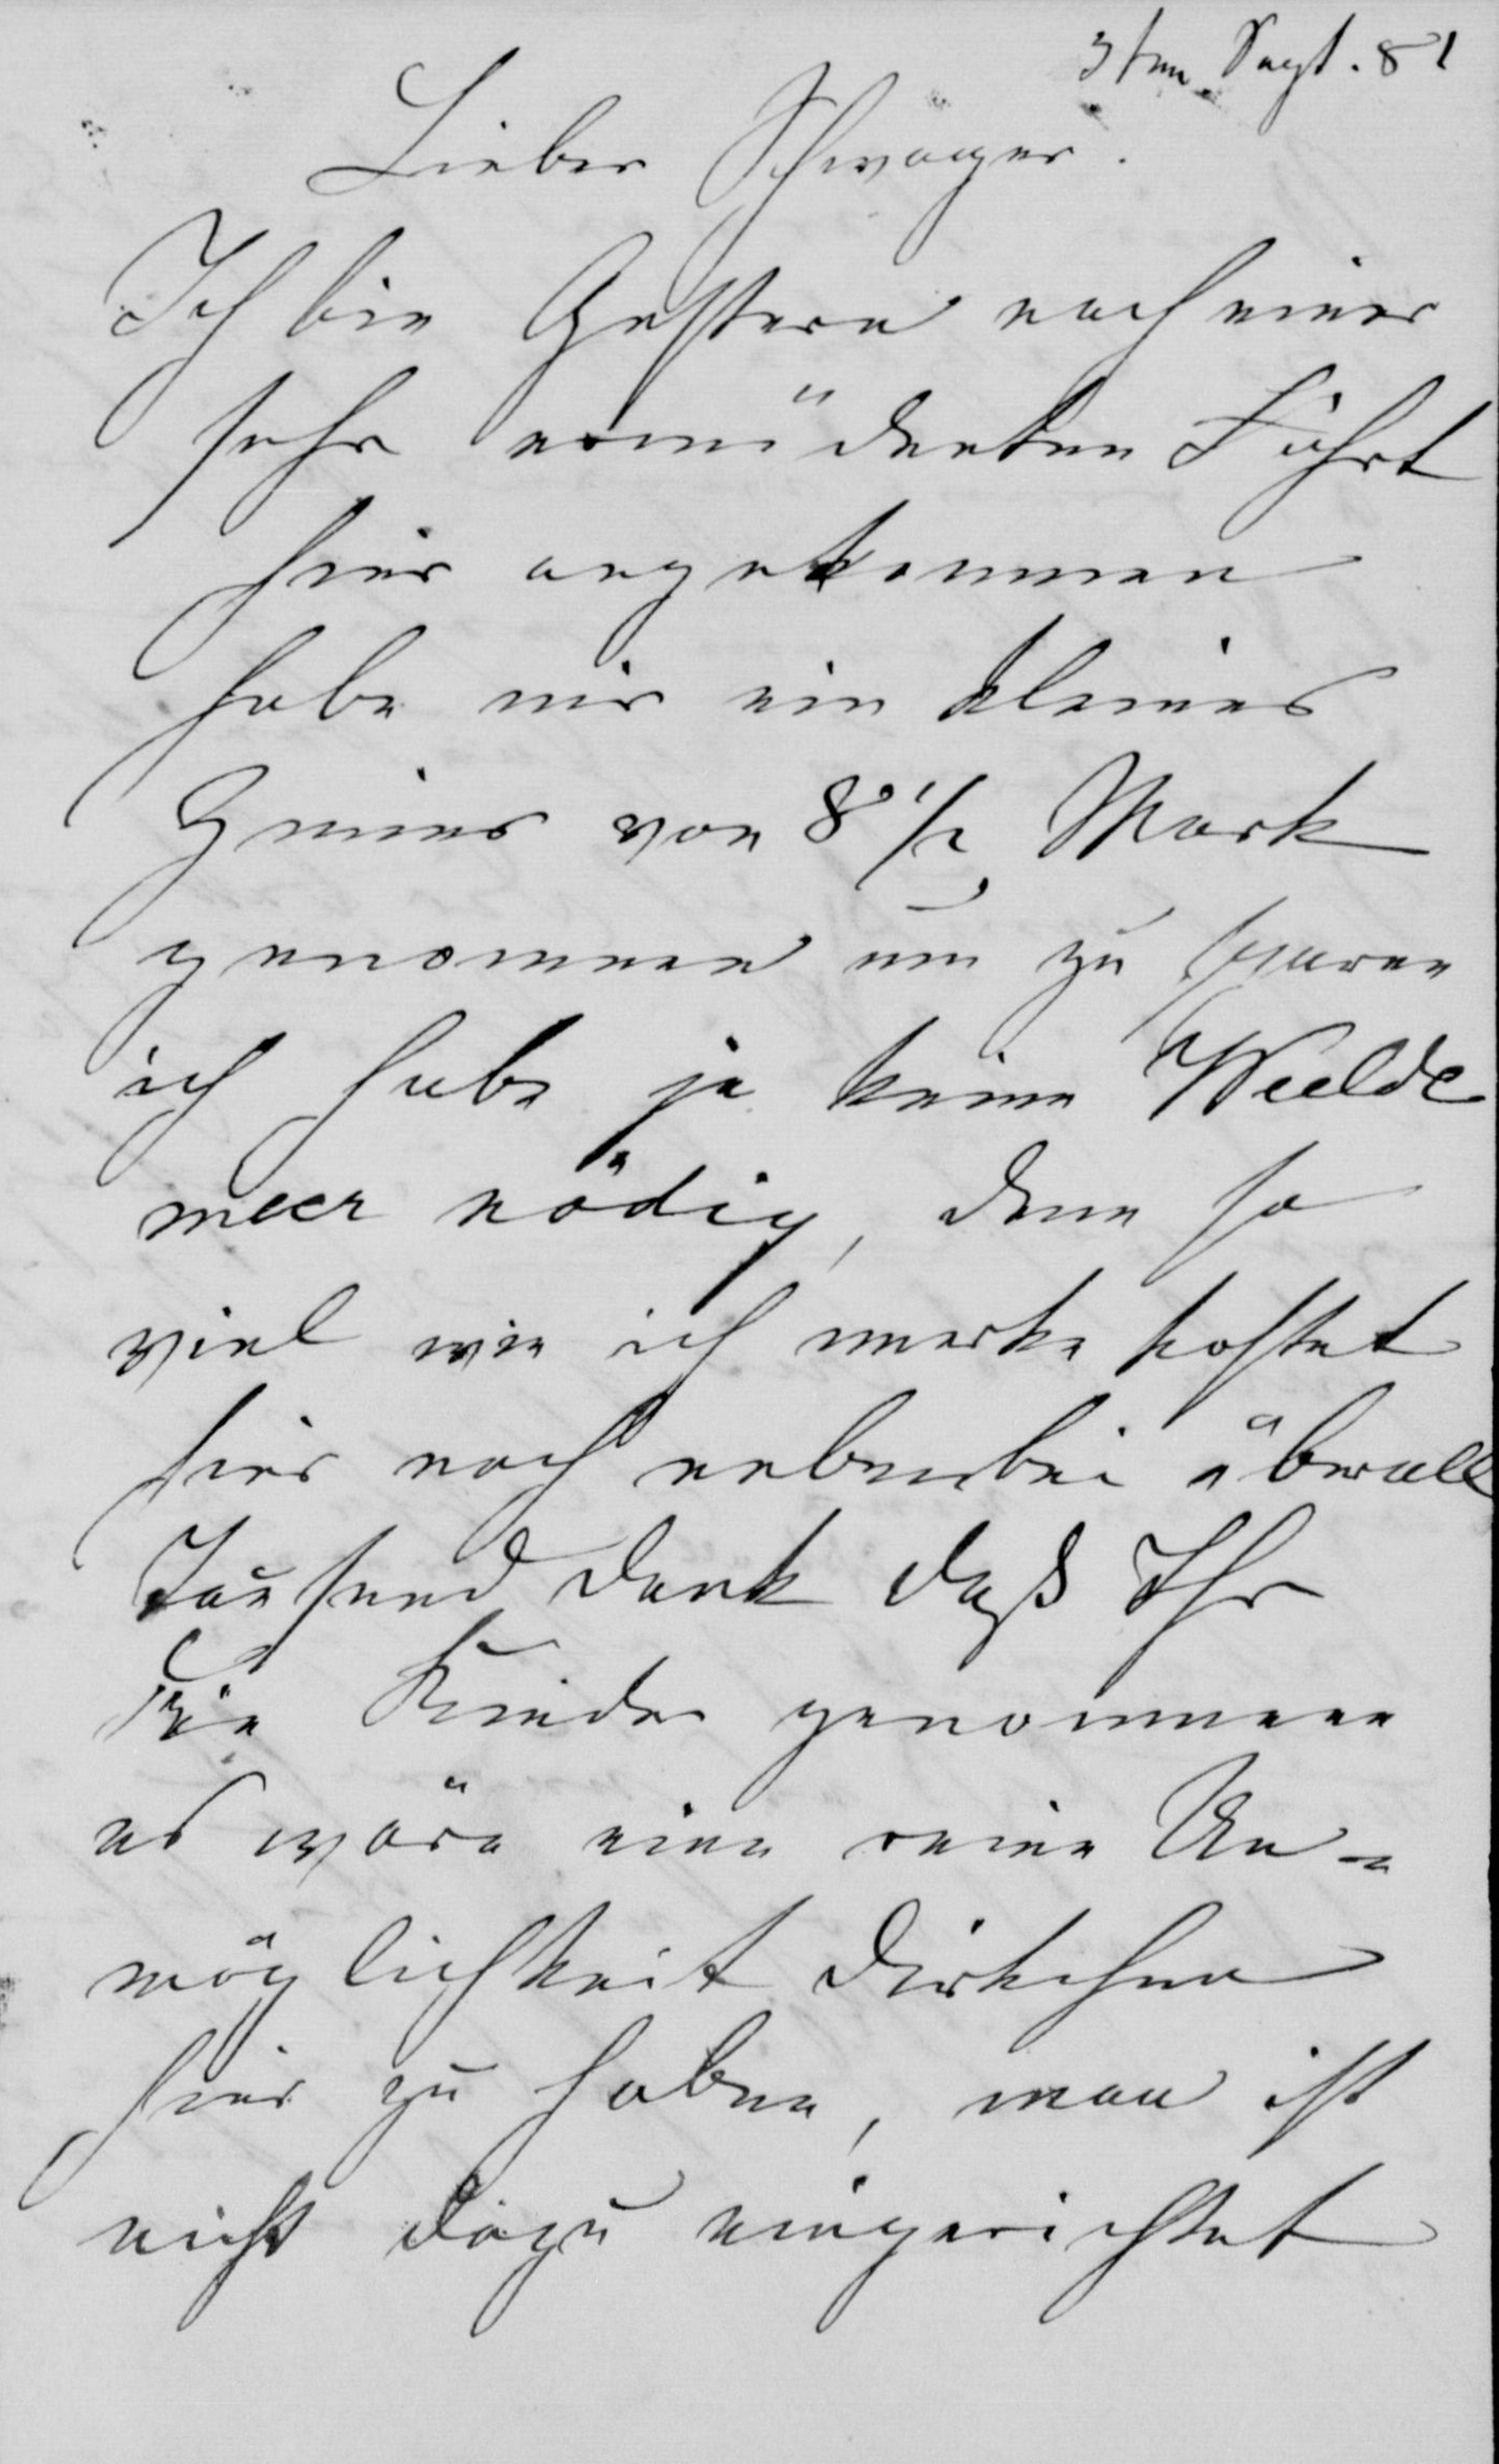 3ten Sept. 81
Lieber Schwager.
Ich bin Gestern nach einer
sehr ermüdenten Fahrt
hier angekommen
habe mir ein kleines
Zimmer von 8 1/2 Mark
genommen um zu sparen
ich habe ja keine Weelde
meer nödig, denn so
viel wie ich merke kostet
hier noch nebenbei überall
Tausend Dank daß Ihr
die Kinder genommen
es wäre eine reine Un-
möglichkeit Dirkchen
hier zu haben, man ist
nicht dazu eingerichtet